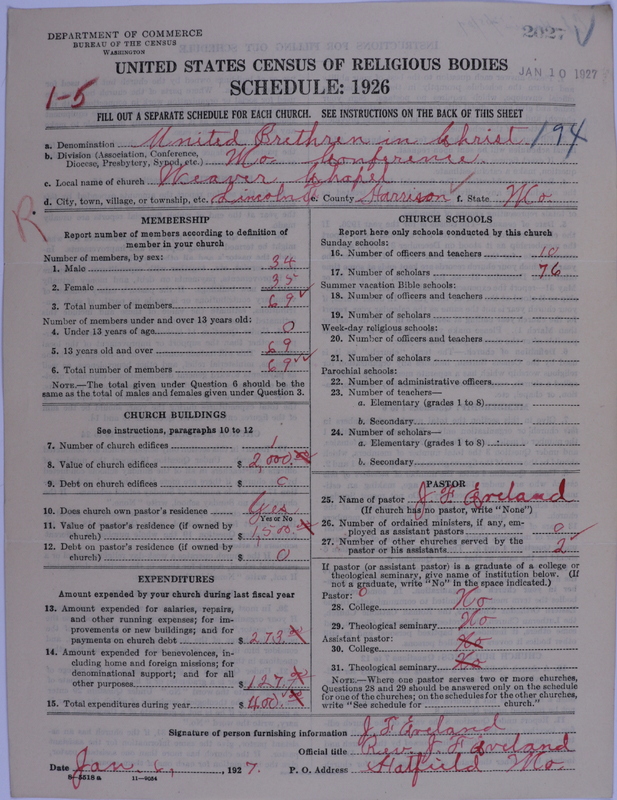 DEPARTMENT OF COMMERCE
BUREAU OF THE CENSUS
WASHINGTON
2027
JAN 10 1927
UNITED STATES CENSUS OF RELIGIOUS BODIES
SCHEDULE: 1926
1-5
FILL OUT A SEPARATE SCHEDULE FOR EACH CHURCH. SEE INSTRUCTIONS ON THE BACK OF THIS SHEET
a. Denomination United Brethren in Christ 194
b. Division (Association, Conference, Diocese, Presbytery, Synod, etc.) Mo. Conference
c. Local name of church Weaver Chapel
d. City, town, village, or township, etc. Lincoln e. County Harrison f. State Mo
R
MEMBERSHIP
Report number of members according to definition of member in your church
Number of members, by sex:
1. Male 34
2. Female 35
3. Total number of members 69
Number of members under and over 13 years old:
4. Under 13 years of age 0
5. 13 years old and over 69
6. Total number of members 69
NOTE.—The total given under Question 6 should be the same as the total of males and females given under Question 3.
CHURCH BUILDINGS
See instructions, paragraphs 10 to 12
7. Number of church edifices 1
8. Value of church edifices $ 2,000.
9. Debt on church edifices $ 0
10. Does church own pastor's residence Yes
Yes or No
11. Value of pastor's residence (if owned by church) $ 1,500.
12. Debt on pastor's residence (if owned by church) $ 0
EXPENDITURES
Amount expended by your church during last fiscal year
13. Amount expended for salaries, repairs, and other running expenses; for improvements or new buildings; and for payments on church debt $ 273
14. Amount expended for benevolences, including home and foreign missions; for denominational support; and for all other purposes $ 127
15. Total expenditures during year $ 400.
CHURCH SCHOOLS
Report here only schools conducted by this church
Sunday schools:
16. Number of officers and teachers 10
17. Number of scholars 76
Summer vacation Bible schools:
18. Number of officers and teachers
19. Number of scholars
Week-day religious schools:
20. Number of officers and teachers
21. Number of scholars
Parochial schools:
22. Number of administrative officers
23. Number of teachers—
a. Elementary (grades 1 to 8)
b. Secondary
24. Number of scholars—
a. Elementary (grades 1 to 8)
b. Secondary
PASTOR
25. Name of pastor J F Eveland
(If church has no pastor, write "None")
26. Number of ordained ministers, if any, employed as assistant pastors 0
27. Number of other churches served by the pastor or his assistants 2
If pastor (or assistant pastor) is a graduate of a college or theological seminary, give name of institution below. (If not a graduate, write "No" in the space indicated.)
Pastor: 0
28. College No
29. Theological seminary No
Assistant pastor:
30. College No
31. Theological seminary No
NOTE.—Where one pastor serves two or more churches, Questions 28 and 29 should be answered only on the schedule for one of the churches; on the schedules for the other churches, write "See schedule for church."
Signature of person furnishing information J F Eveland
Official title Rev. J F Eveland
Date Jan. 6, 1927. P. O. Address Hatfield Mo.
8-5518 a 11-9054